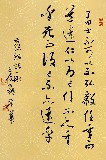 曰士不可以不弘毅任重而
道遠仁以為己任不亦重
乎死而後已不亦遠乎